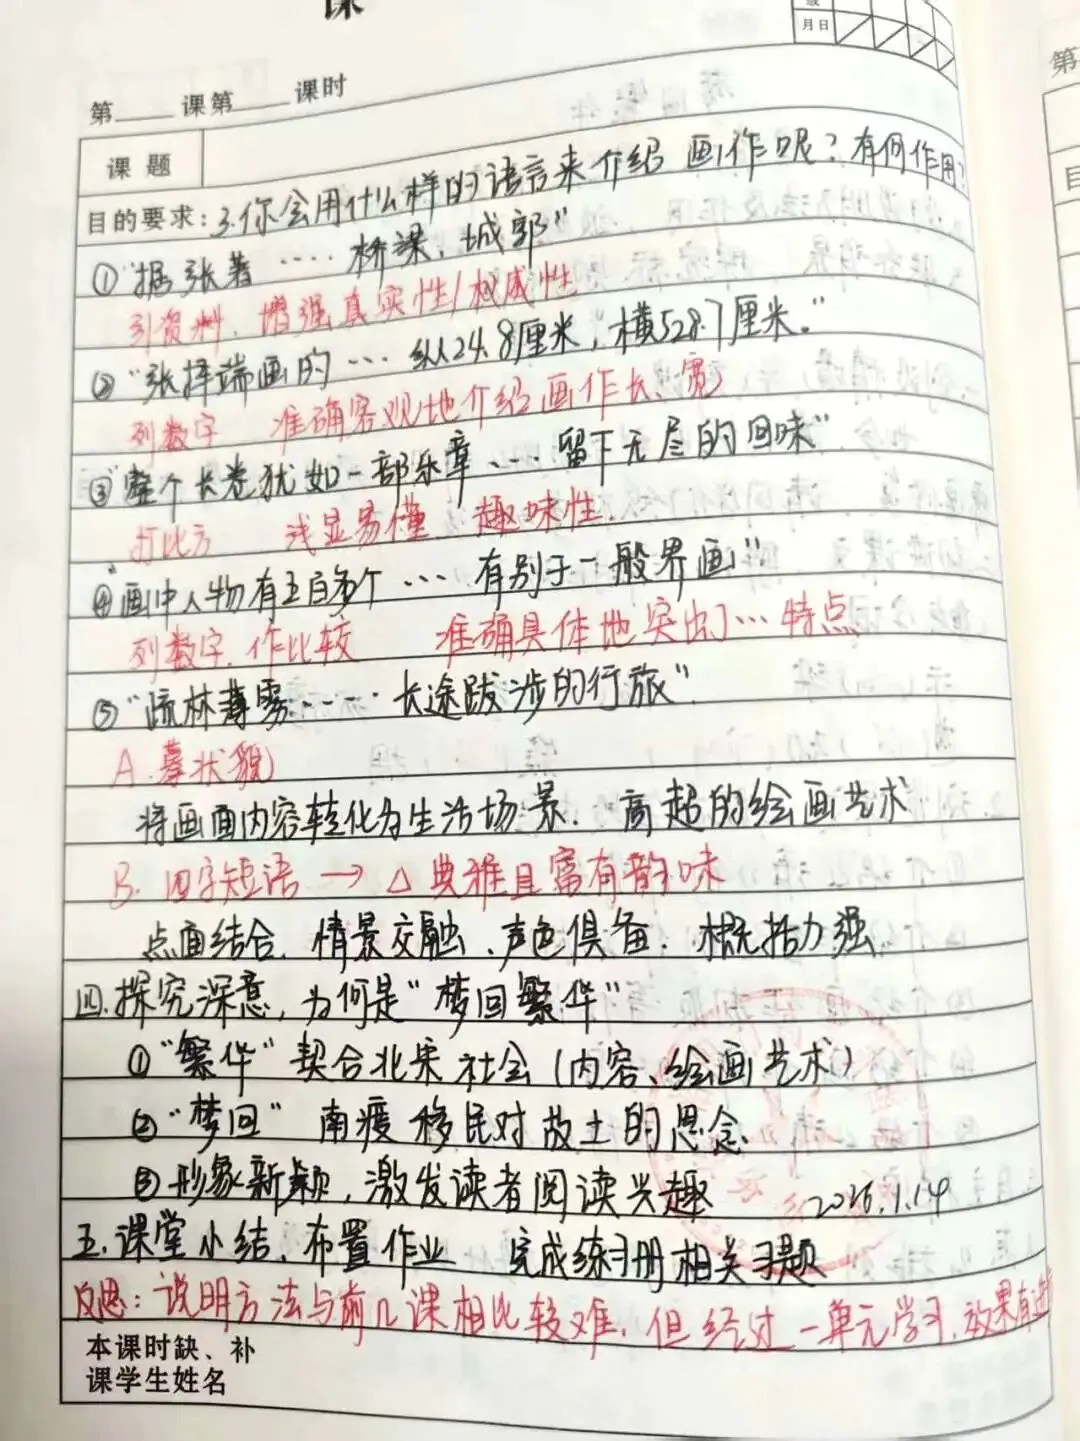 课
月日
第____课第____课时
第
课题
目的要求：3.你会用什么样的语言来介绍画作呢？有何作用？
①"据张著……桥梁，城郭"
引资料，增强真实性/权威性
②"张择端画的…纵24.8厘米，横528.7厘米。"
列数字 准确客观地介绍画作长、宽
③"整个长卷犹如一部乐章…留下无尽的回味"
打比方 浅显易懂，趣味性.
④画中人物有五百多个…有别于一般界画"
列数字.作比较 准确具体地突出了…特点
⑤"疏林薄雾……长途跋涉的行旅"
A.摹状貌
将画面内容转化为生活场景.高超的绘画艺术
B.四字短语→△典雅且富有韵味
点面结合.情景交融、声色俱备.概括力强
四.探究深意，为何是"梦回繁华"
①"繁华"契合北宋社会(内容、绘画艺术)
②"梦回"南渡移民对故土的思念
③形象新颖，激发读者阅读兴趣
2026.1.14
五.课堂小结、布置作业 完成练习册相关习题
反思：说明方法与前几课相比较难，但经过一单元学习，效果有进
本课时缺、补
课学生姓名